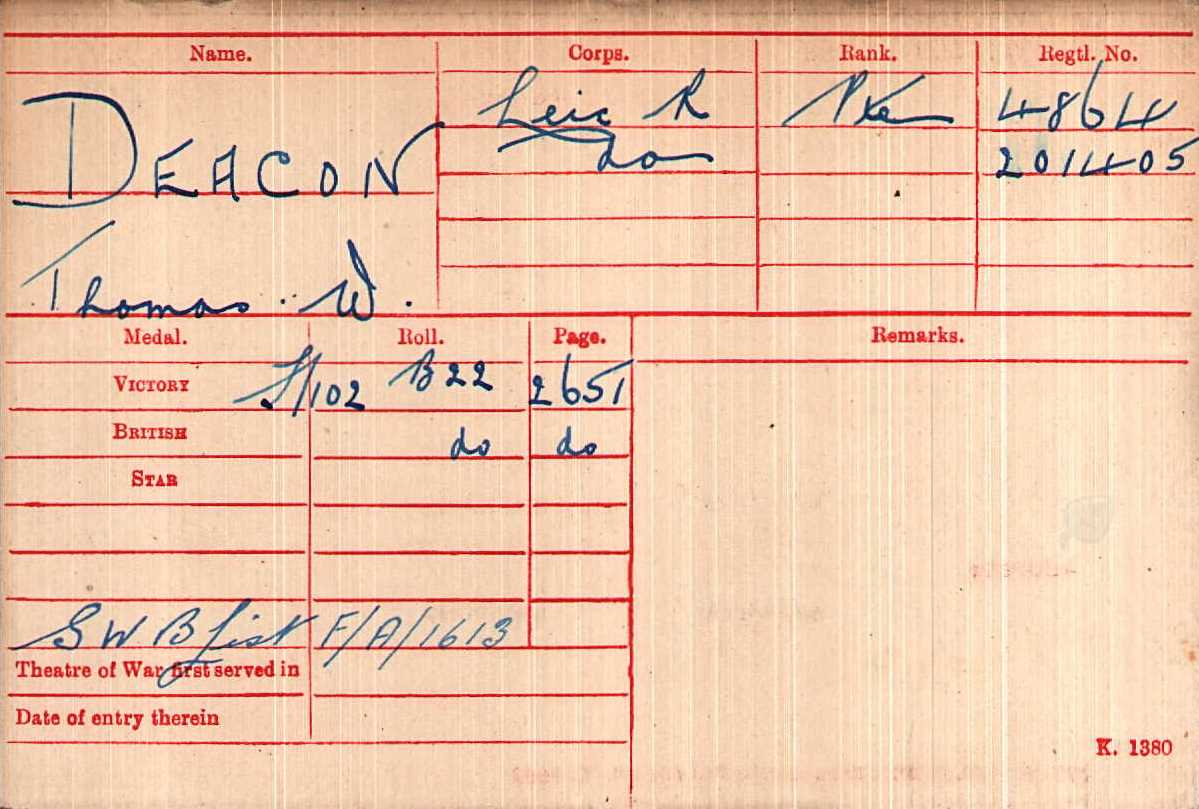 Name. Corps. Rank. Regtl. No.
DEACON Leic R Pte 4864
do 201405
Thomas W.
Medal. Roll. Page. Remarks.
VICTORY J/102 B22 2651
BRITISH do do
STAR
S W B List F/A/1613
Theatre of War first served in
Date of entry therein
K. 1380